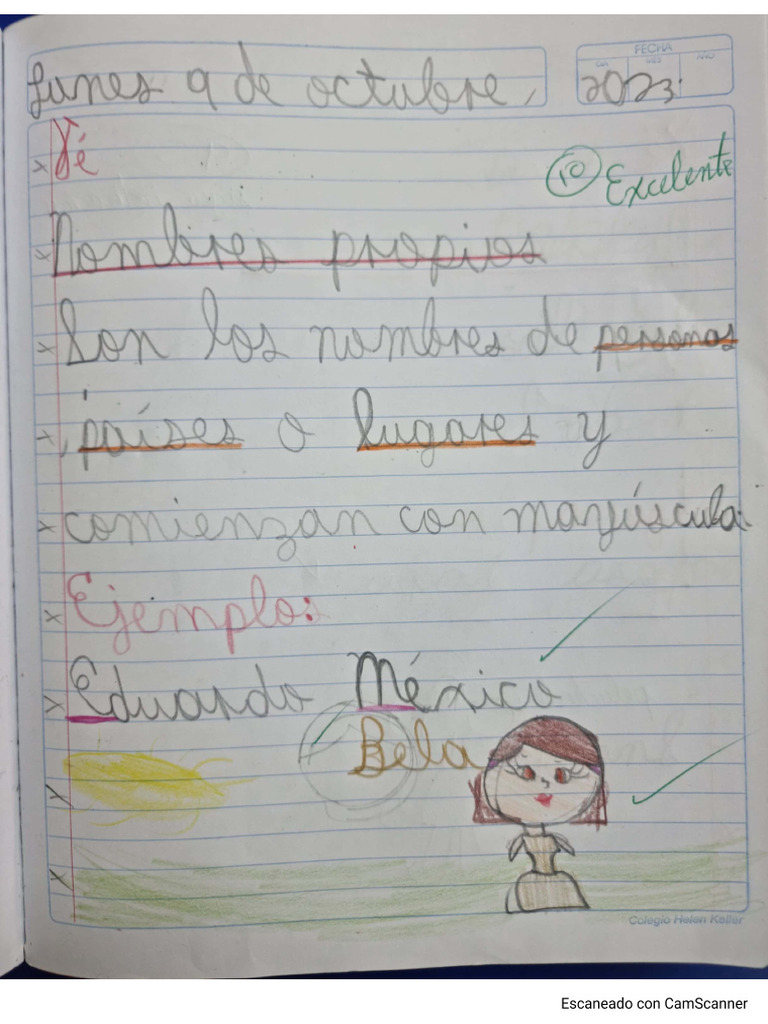 FECHA
DIA MES AÑO
Lunes 9 de octubre, 2023.
Té
10 Excelente
Nombres propios
Son los nombres de personas
, países o lugares y
comienzan con mayúscula.
Ejemplo:
Eduardo México
Bela
Colegio Helen Keller
Escaneado con CamScanner